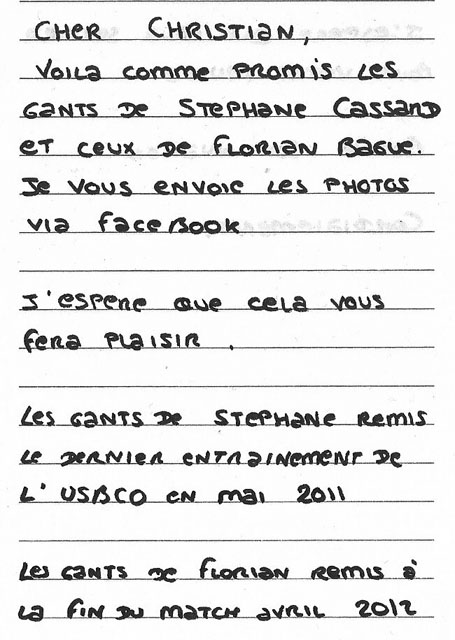 CHER CHRISTIAN,
VOILA COMME PROMIS LES
GANTS DE STEPHANE CASSARD
ET CEUX DE FLORIAN BAGUE.
JE VOUS ENVOIE LES PHOTOS
VIA FACEBOOK
J'ESPERE QUE CELA VOUS
FERA PLAISIR .
LES GANTS DE STEPHANE REMIS
LE DERNIER ENTRAINEMENT DE
L'USBCO EN MAI 2011
LES GANTS DE FLORIAN REMIS à
LA FIN DU MATCH AVRIL 2012